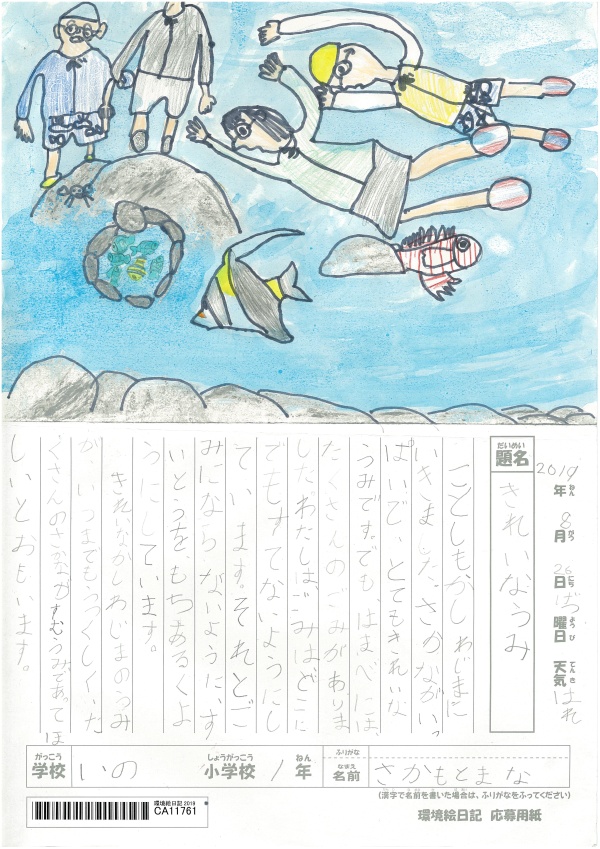 2019年ねん 8月がつ 26日にち げつ曜日ようび 天気てんき はれ
だいめい
題名 きれいなうみ
ことしもかしわじまに
いきました。さかながいっ
ぱいで、とてもきれいな
うみです。でも、はまべには
たくさんのごみがありま
した。わたしは、ごみはどこに
でもすてないようにし
ています。それとご
みにならないように、す
いとうを、もちあるくよ
うにしています。
きれいなかしわじまのうみ
が、いつまでも、うつくしくた
くさんのさかながすむうみであってほ
しいとおもいます。
がっこう しょうがっこう ねん ふりがな
学校 いの 小学校 1年 なまえ 名前 さかもとまな
(漢字で名前を書いた場合は、ふりがなをふってください)
環境絵日記 2019
CA11761
環境絵日記 応募用紙